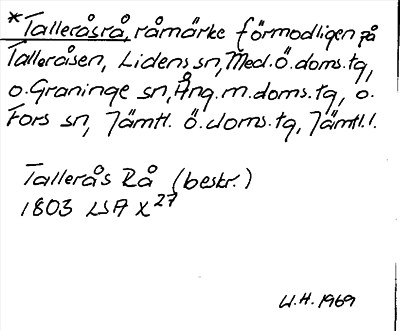 *Talleråsrå, råmärke förmodligen på
Talleråsen, Lidens sn, Med. Ö. doms. tg,
o. Graninge sn, Ång. m. doms. tg, o.
Fors sn, Jämtl. Ö. doms. tg, Jämtl. l.
Tallerås Rå (beskr.)
1803 LSA X 27
W.H. 1969